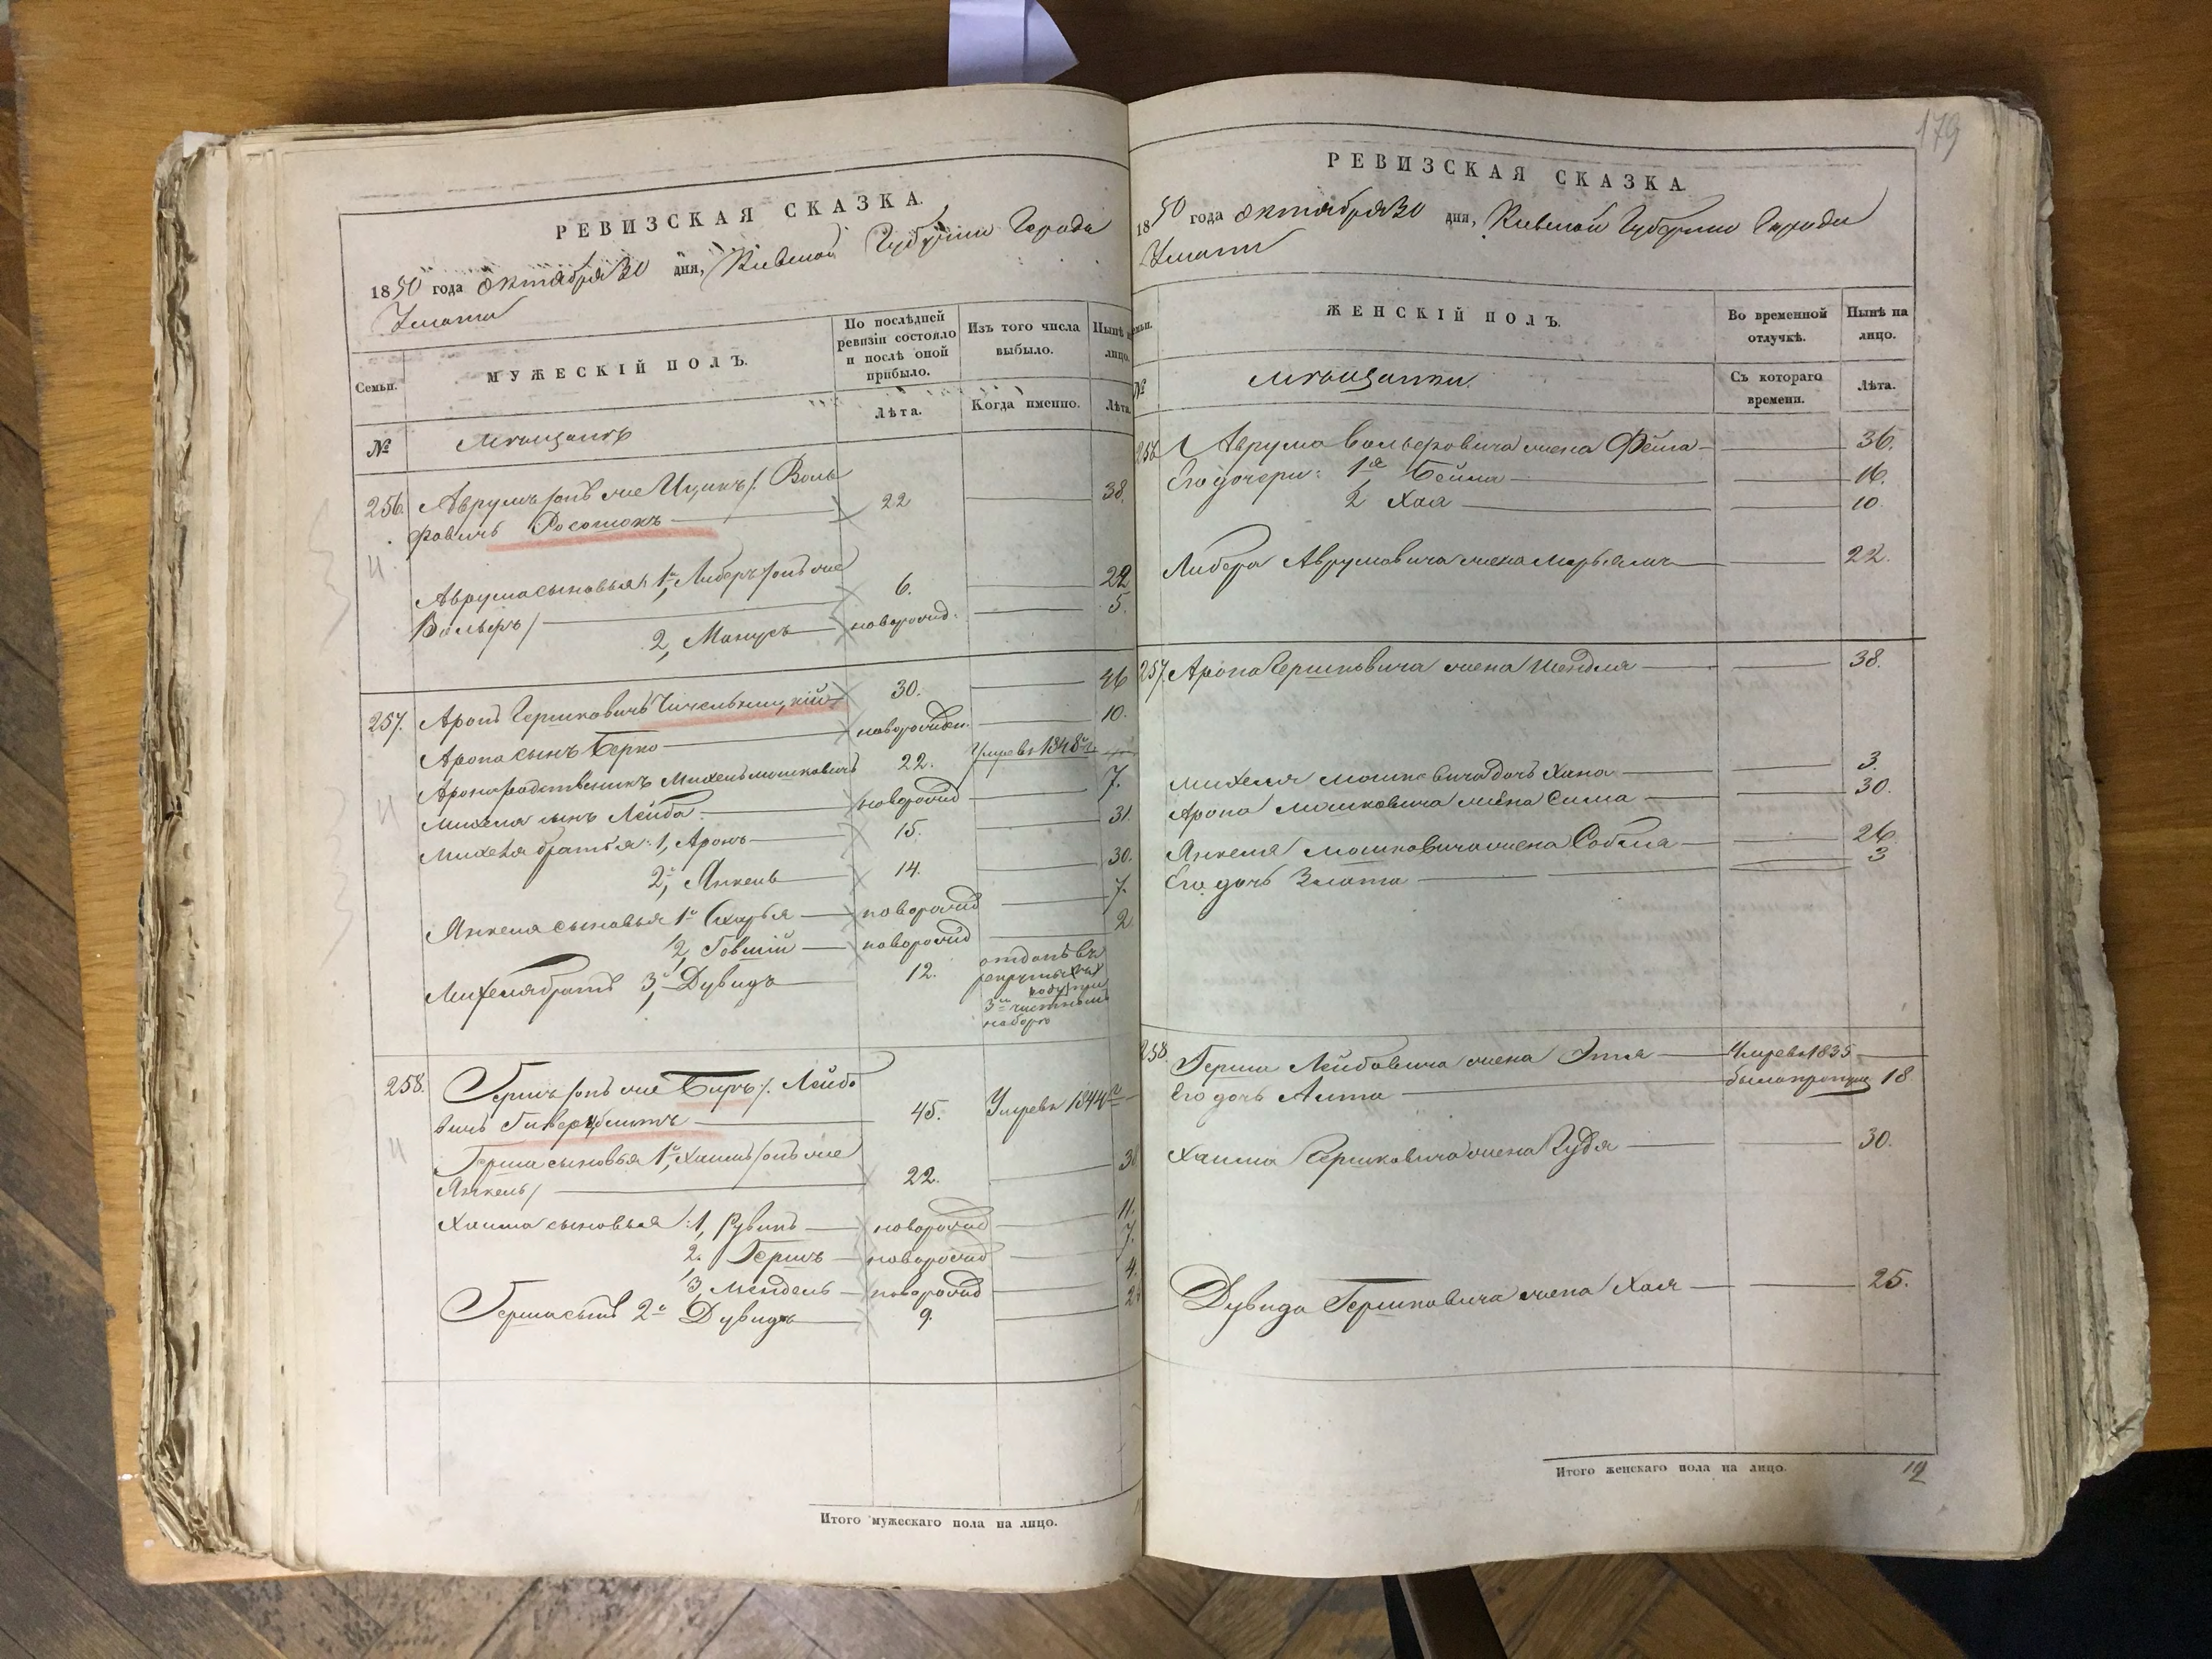 РЕВИЗСКАЯ СКАЗКА.
1850 года октября 30 дня, Киевской Губернии Города
Умани
Семьи.
МУЖЕСКІЙ ПОЛЪ.
По послѣдней ревизіи состояло и послѣ оной прибыло.
Изъ того числа выбыло.
Нынѣ на лицо.
№
Мѣщанѣ
Лѣта.
Когда именно.
Лѣта.
256. Аврумъ /онъ же Ицикъ/. Воль
фовичъ 22 38.
Аврума сыновья 1й Либеръ /онъ же
Вольфъ/ 6. 22
2, Манусъ новорожд. 5.
257. Аронъ Гершковичъ 30. 46
Арона сынъ Берко новорожден. 10.
Арона родственникъ Михель Мошковичъ 22. Умре въ 1848 г.
Михеля сынъ Лейба новорожд 7.
Михеля братья: 1, Аронъ 15. 31.
2й, Янкель 14. 30.
Янкеля сыновья 1й новорожд 7.
2, новорожд 2
Михеля братъ 3й Дувидъ 12. отданъ въ
рекруты въ
3й частномъ
наборѣ
258. Гершъ /онъ же Лейбо
вичъ 45. Умре въ 1844 г.
Герша сыновья 1й, Хаимъ /онъ же
Янкель/ 22.
Хаима сыновья: 1, Рувинъ новорожд 11.
2. Гершъ новорожд 7.
3, Мендель новорожд 4.
Герша сынъ 2й Дувидъ 9.
Итого мужескаго пола на лицо.
179
РЕВИЗСКАЯ СКАЗКА.
1850 года октября 30 дня, Киевской Губернии Города
Умани
Семьи.
ЖЕНСКІЙ ПОЛЪ.
Во временной отлучкѣ.
Нынѣ на лицо.
№
Мѣщанки.
Съ котораго времени.
Лѣта.
256 Аврума Вольфовича жена Фейга 36.
Его дочери: 1я Бейла 16.
2 Хая 10.
Либера Аврумовича жена Марьямъ 22.
257. Арона Гершковича жена Шендля 38.
Михеля Мошковича дочь Хана 3.
Арона Мошковича жена Сима 30.
Янкеля Мошковича жена 26
Его дочь Злата 3
258. Герша Лейбовича жена Умре въ 1835
Его дочь 18
Хаима Гершковича жена 30.
Дувида Гершковича жена Хая 25.
Итого женскаго пола на лицо. 12